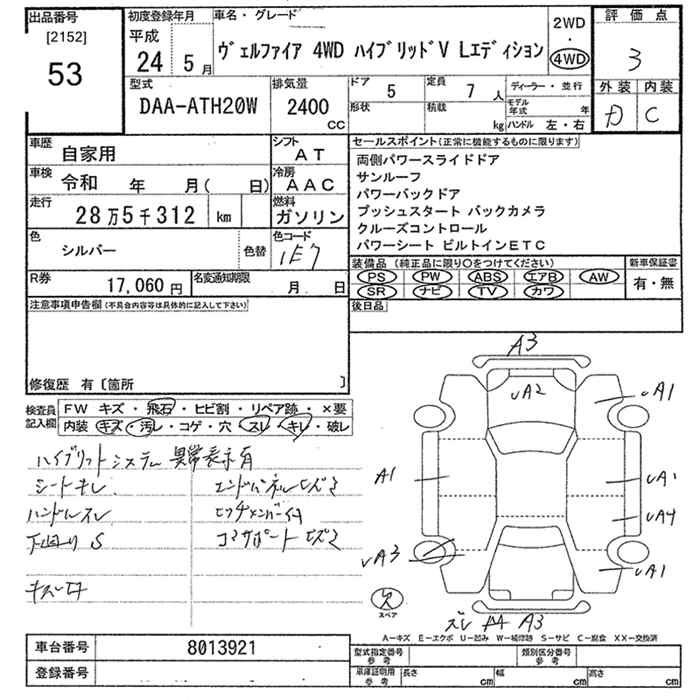 出品番号
[2152]
53
初度登録年月
平成
24 5月
車名・グレード
ヴェルファイア 4WD ハイブリッドV Lエディション
2WD
・
4WD
評価点
3
外装 内装
D C
型式
DAA-ATH20W
排気量
2400
cc
ドア 5
定員 7人
形状
積載 kg
ディーラー・並行
モデル年式 年
ハンドル 左・右
車歴 自家用
シフト AT
車検 令和 年 月( 日)
冷房 AAC
走行 28万5千312 km
燃料 ガソリン
色 シルバー 色替
色コード 1E7
R券 17,060円
名変通知期限 月 日
セールスポイント(正常に機能するものに限ります)
両側パワースライドドア
サンルーフ
パワーバックドア
プッシュスタート バックカメラ
クルーズコントロール
パワーシート ビルトインETC
装備品(純正品に限り○をつけてください)
PS PW ABS エアB AW
SR ナビ TV カワ
新車保証書
有・無
後日品
注意事項申告欄(不具合内容等は具体的に記入して下さい)
修復歴 有〔箇所 〕
検査員記入欄
FW キズ・飛石・ヒビ割・リペア跡・×要
内装 キズ・汚レ・コゲ・穴 スレ・キレ・破レ
ハイブリットシステム 異常表示有
シートキレ エンドパネルヒズミ
ハンドルスレ
下回り S コアサポートヒズミ
A3
UA2
UA1
A1
UA1
UA4
UA3
UA1
ズレ
A4 A3
スペア
A−キズ E−エクボ U−凹み W−補修跡 S−サビ C−腐食 XX−交換済
車台番号 8013921
登録番号
型式指定番号 参考
類別区分番号 参考
車庫証明用 参考
長さ cm
幅 cm
高さ cm